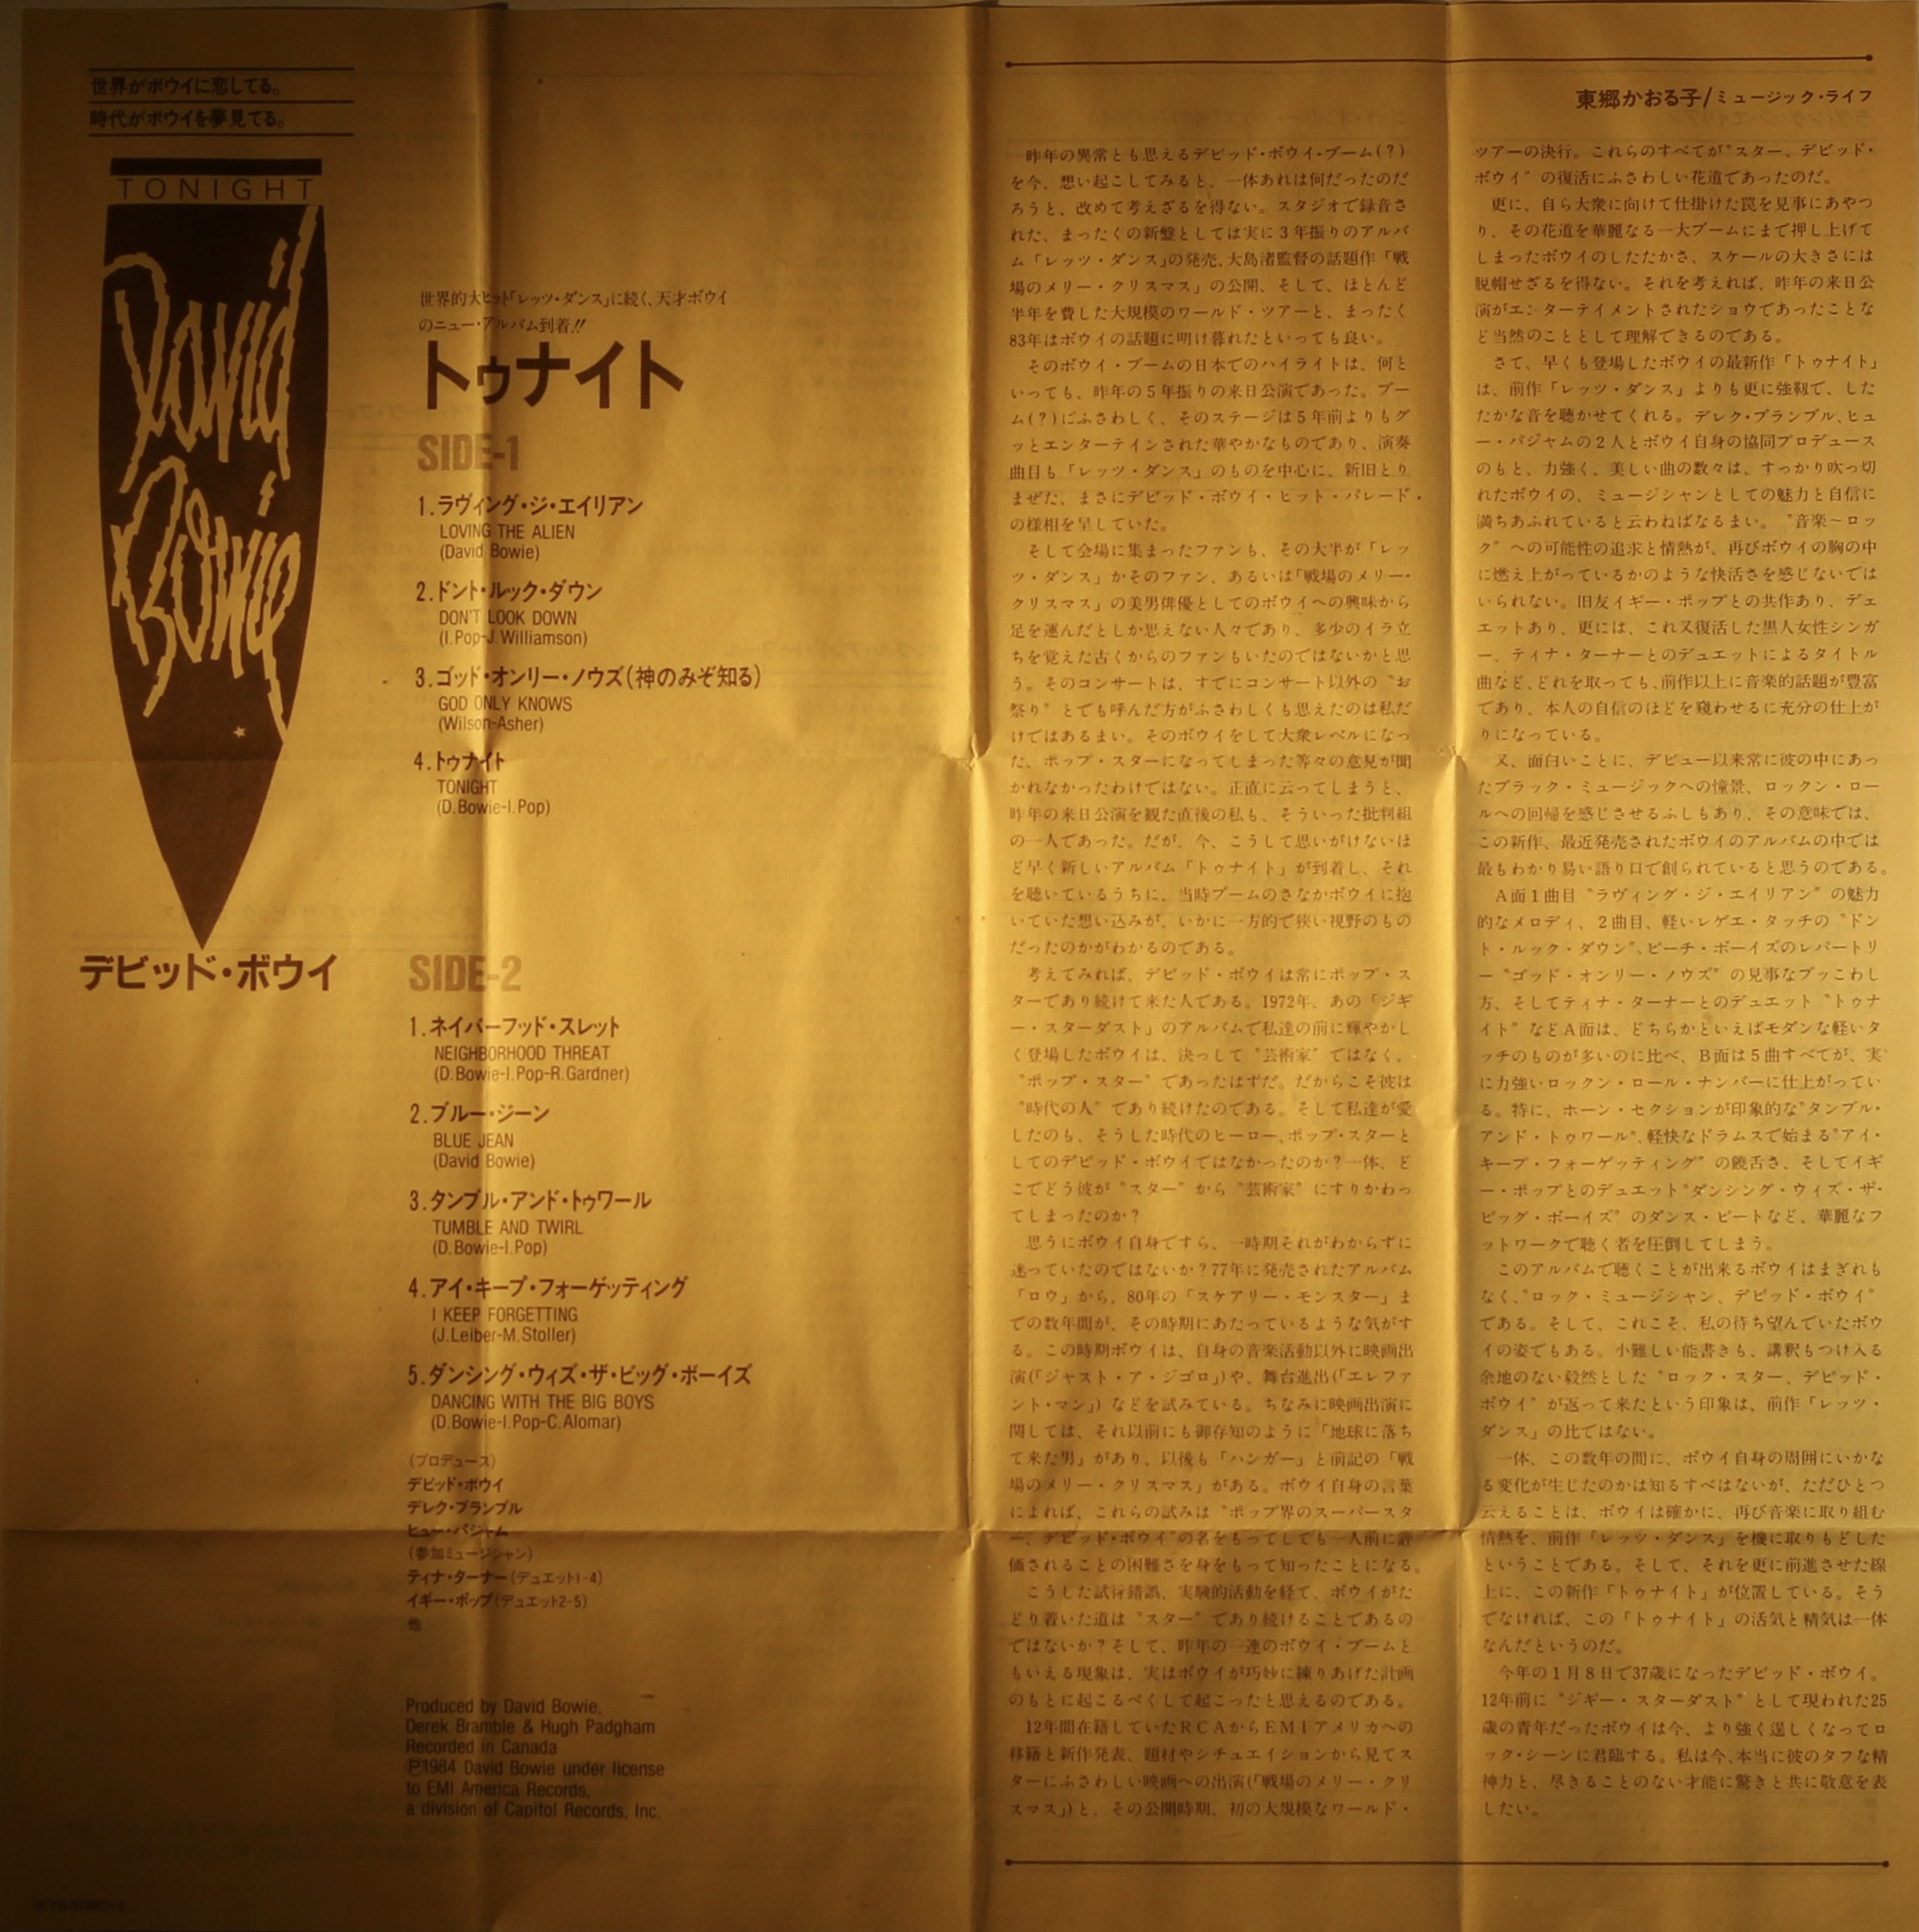 世界がボウイに恋してる。
時代がボウイを夢見てる。
TONIGHT
David
Bowie
デビッド・ボウイ
世界的大ヒット「レッツ・ダンス」に続く、天才ボウイ
のニュー・アルバム到着!!
トゥナイト
SIDE-1
1.ラヴィング・ジ・エイリアン
LOVING THE ALIEN
(David Bowie)
2.ドント・ルック・ダウン
DON'T LOOK DOWN
(I.Pop-J.Williamson)
3.ゴッド・オンリー・ノウズ(神のみぞ知る)
GOD ONLY KNOWS
(Wilson-Asher)
4.トゥナイト
TONIGHT
(D.Bowie-I.Pop)
SIDE-2
1.ネイバーフッド・スレット
NEIGHBORHOOD THREAT
(D.Bowie-I.Pop-R.Gardner)
2.ブルー・ジーン
BLUE JEAN
(David Bowie)
3.タンブル・アンド・トゥワール
TUMBLE AND TWIRL
(D.Bowie-I.Pop)
4.アイ・キープ・フォーゲッティング
I KEEP FORGETTING
(J.Leiber-M.Stoller)
5.ダンシング・ウィズ・ザ・ビッグ・ボーイズ
DANCING WITH THE BIG BOYS
(D.Bowie-I.Pop-C.Alomar)
(プロデュース)
デビッド・ボウイ
デレク・ブランブル
ヒュー・パジャム
(参加ミュージシャン)
ティナ・ターナー(デュエット1-4)
イギー・ポップ(デュエット2-5)
他
Produced by David Bowie,
Derek Bramble & Hugh Padgham
Recorded in Canada
Ⓟ1984 David Bowie under license
to EMI America Records,
a division of Capitol Records, Inc.
東郷かおる子/ミュージック・ライフ
昨年の異常とも思えるデビッド・ボウイ・ブーム(?)
を今、想い起こしてみると、一体あれは何だったのだ
ろうと、改めて考えざるを得ない。スタジオで録音さ
れた、まったくの新盤としては実に3年振りのアルバ
ム「レッツ・ダンス」の発売、大島渚監督の話題作「戦
場のメリー・クリスマス」の公開、そして、ほとんど
半年を費した大規模のワールド・ツアーと、まったく
83年はボウイの話題に明け暮れたといっても良い。
そのボウイ・ブームの日本でのハイライトは、何と
いっても、昨年の5年振りの来日公演であった。ブー
ム(?)にふさわしく、そのステージは5年前よりもグ
ッとエンターテインされた華やかなものであり、演奏
曲目も「レッツ・ダンス」のものを中心に、新旧とり
まぜた、まさにデビッド・ボウイ・ヒット・パレード・
の様相を呈していた。
そして会場に集まったファンも、その大半が「レッ
ツ・ダンス」かそのファン、あるいは「戦場のメリー・
クリスマス」の美男俳優としてのボウイへの興味から
足を運んだとしか思えない人々であり、多少のイラ立
ちを覚えた古くからのファンもいたのではないかと思
う。そのコンサートは、すでにコンサート以外の〝お
祭り〞とでも呼んだ方がふさわしくも思えたのは私だ
けではあるまい。そのボウイをして大衆レベルになっ
た、ポップ・スターになってしまった等々の意見が聞
かれなかったわけではない。正直に云ってしまうと、
昨年の来日公演を観た直後の私も、そういった批判組
の一人であった。だが、今、こうして思いがけないほ
ど早く新しいアルバム「トゥナイト」が到着し、それ
を聴いているうちに、当時ブームのさなかボウイに抱
いていた想い込みが、いかに一方的で狭い視野のもの
だったのかがわかるのである。
考えてみれば、デビッド・ボウイは常にポップ・ス
ターであり続けて来た人である。1972年、あの「ジギ
ー・スターダスト」のアルバムで私達の前に輝やかし
く登場したボウイは、決っして〝芸術家〞ではなく、
〝ポップ・スター〞であったはずだ。だからこそ彼は
〝時代の人〞であり続けたのである。そして私達が愛
したのも、そうした時代のヒーロー、ポップ・スターと
してのデビッド・ボウイではなかったのか?一体、ど
こでどう彼が〝スター〞から〝芸術家〞にすりかわっ
てしまったのか?
思うにボウイ自身ですら、一時期それがわからずに
迷っていたのではないか?77年に発売されたアルバム
「ロウ」から、80年の「スケアリー・モンスター」ま
での数年間が、その時期にあたっているような気がす
る。この時期ボウイは、自身の音楽活動以外に映画出
演(「ジャスト・ア・ジゴロ」)や、舞台進出(「エレファ
ント・マン」)などを試みている。ちなみに映画出演に
関しては、それ以前にも御存知のように「地球に落ち
て来た男」があり、以後も「ハンガー」と前記の「戦
場のメリー・クリスマス」がある。ボウイ自身の言葉
によれば、これらの試みは〝ポップ界のスーパースタ
ー、デビッド・ボウイ〞の名をもってしても一人前に評
価されることの困難さを身をもって知ったことになる。
こうした試行錯誤、実験的活動を経て、ボウイがた
どり着いた道は〝スター〞であり続けることであるの
ではないか?そして、昨年の一連のボウイ・ブームと
もいえる現象は、実はボウイが巧妙に練りあげた計画
のもとに起こるべくして起こったと思えるのである。
12年間在籍していたRCAからEMIアメリカへの
移籍と新作発表、題材やシチュエイションから見てス
ターにふさわしい映画への出演(「戦場のメリー・クリ
スマス」)と、その公開時期、初の大規模なワールド・
ツアーの決行。これらのすべてが〝スター、デビッド・
ボウイ〞の復活にふさわしい花道であったのだ。
更に、自ら大衆に向けて仕掛けた罠を見事にあやつ
り、その花道を華麗なる一大ブームにまで押し上げて
しまったボウイのしたたかさ、スケールの大きさには
脱帽せざるを得ない。それを考えれば、昨年の来日公
演がエンターテイメントされたショウであったことな
ど当然のこととして理解できるのである。
さて、早くも登場したボウイの最新作「トゥナイト」
は、前作「レッツ・ダンス」よりも更に強靱で、した
たかな音を聴かせてくれる。デレク・ブランブル、ヒュ
ー・パジャムの2人とボウイ自身の協同プロデュース
のもと、力強く、美しい曲の数々は、すっかり吹っ切
れたボウイの、ミュージシャンとしての魅力と自信に
満ちあふれていると云わねばなるまい。〝音楽〜ロッ
ク〞への可能性の追求と情熱が、再びボウイの胸の中
に燃え上がっているかのような快活さを感じないでは
いられない。旧友イギー・ポップとの共作あり、デュ
エットあり、更には、これ又復活した黒人女性シンガ
ー、ティナ・ターナーとのデュエットによるタイトル
曲など、どれを取っても、前作以上に音楽的話題が豊富
であり、本人の自信のほどを窺わせるに充分の仕上が
りになっている。
又、面白いことに、デビュー以来常に彼の中にあっ
たブラック・ミュージックへの憧景、ロックン・ロー
ルへの回帰を感じさせるふしもあり、その意味では、
この新作、最近発売されたボウイのアルバムの中では
最もわかり易い語り口で創られていると思うのである。
A面1曲目〝ラヴィング・ジ・エイリアン〞の魅力
的なメロディ、2曲目、軽いレゲエ・タッチの〝ドン
ト・ルック・ダウン〞、ビーチ・ボーイズのレパートリ
ー〝ゴッド・オンリー・ノウズ〞の見事なブッこわし
方、そしてティナ・ターナーとのデュエット〝トゥナ
イト〞などA面は、どちらかといえばモダンな軽いタ
ッチのものが多いのに比べ、B面は5曲すべてが、実
に力強いロックン・ロール・ナンバーに仕上がってい
る。特に、ホーン・セクションが印象的な〝タンブル・
アンド・トゥワール〞、軽快なドラムスで始まる〝アイ・
キープ・フォーゲッティング〞の饒舌さ、そしてイギ
ー・ポップとのデュエット〝ダンシング・ウィズ・ザ・
ビッグ・ボーイズ〞のダンス・ビートなど、華麗なフ
ットワークで聴く者を圧倒してしまう。
このアルバムで聴くことが出来るボウイはまぎれも
なく、〝ロック・ミュージシャン、デビッド・ボウイ〞
である。そして、これこそ、私の待ち望んでいたボウ
イの姿でもある。小難しい能書きも、講釈もつけ入る
余地のない毅然とした〝ロック・スター、デビッド・
ボウイ〞が返って来たという印象は、前作「レッツ・
ダンス」の比ではない。
一体、この数年の間に、ボウイ自身の周囲にいかな
る変化が生じたのかは知るすべはないが、ただひとつ
云えることは、ボウイは確かに、再び音楽に取り組む
情熱を、前作「レッツ・ダンス」を機に取りもどした
ということである。そして、それを更に前進させた線
上に、この新作「トゥナイト」が位置している。そう
でなければ、この「トゥナイト」の活気と精気は一体
なんだというのだ。
今年の1月8日で37歳になったデビッド・ボウイ。
12年前に〝ジギー・スターダスト〞として現われた25
歳の青年だったボウイは今、より強く逞しくなってロ
ック・シーンに君臨する。私は今、本当に彼のタフな精
神力と、尽きることのない才能に驚きと共に敬意を表
したい。